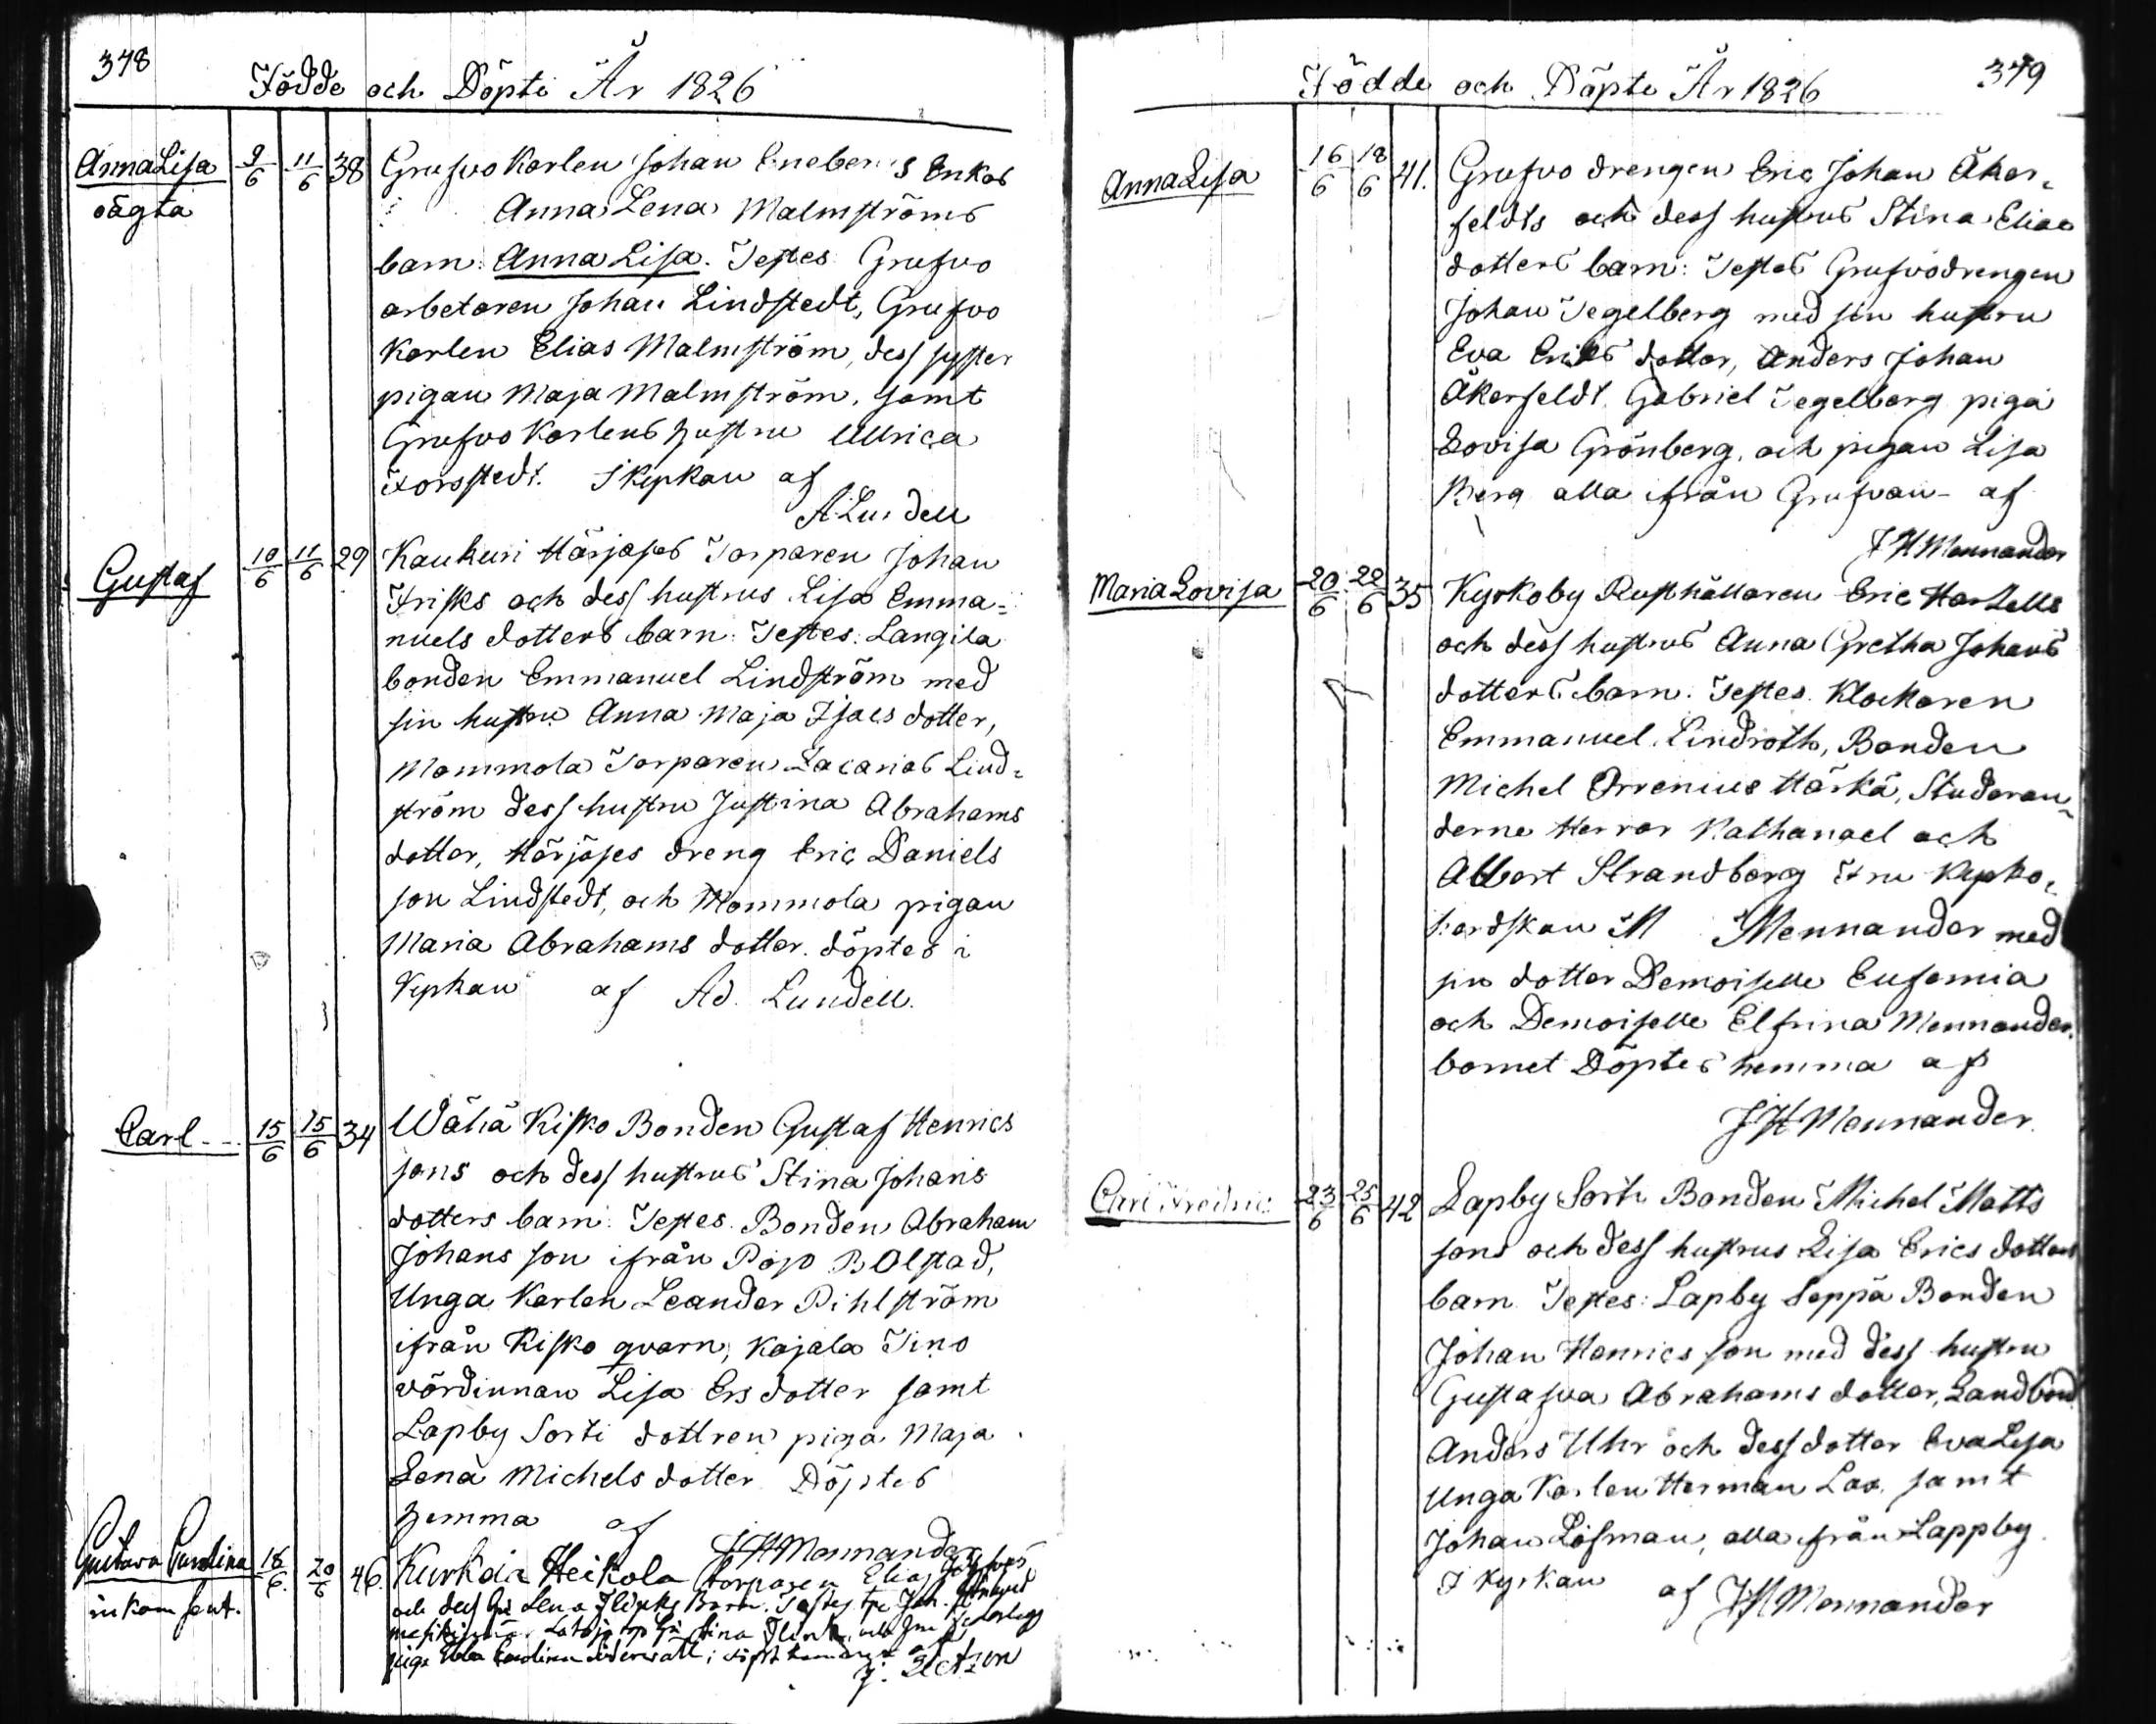 378
Födde och Döpte År 1826
Anna Lisa 9/6 11/6 38 Grufvo Karlen Johan Enebergs Enkas
oägta Anna Lena Malmströms
barn: Anna Lisa. Testes Grufvo
arbetaren Johan Lindstedt, Grufvo
Karlen Elias Malmström, dess syster
pigan Maja Malmström, samt
Grufvo Karlens hustru Ullrica
Forsstedt. I Kyrkan af
A Lundell
Gustaf 10/6 11/6 29 Kaukuri Härjäpes Torparen Johan
Frisks och dess hustrus Lisa Emma=
nuels dotters barn. Testes. Langila
bonden Emmanuel Lindström med
sin hustru Anna Maja Isacs dotter,
Mommola Torparen Zacarias Lind=
ström dess hustru Justina Abrahams
dotter, Härjäpes dreng Eric Daniels
son Lindstedt, och Mommola pigan
Maria Abrahams dotter. döptes i
Kyrkan af Ad. Lundell.
Carl 15/6 15/6 34 Wähä Kisko Bonden Gustaf Henrics
sons och dess hustrus Stina Johans
dotters barn. Testes. Bonden Abraham
Johans son ifrån Pojo Bolstad,
Unga Karlen Leander Pihlström
ifrån Kisko qvarn, Kajala Tino
värdinnan Lisa Ers dotter samt
Lapby Sorti dottren piga Maja
Lena Michels dotter Döptes
hemma af J H Mennander
Gustava Carolina 18/6 20/6 46. Kurkela Heikola torparen Elias
inkom sent. och dess Lena Flinks Barn. Testes Joh.
Stina Flink, och
piga Ulla Carolina döpt hemma af
379
Födde och Döpte År 1826
Anna Lisa 16/6 18/6 41. Grufvo drengen Eric Johan Åker=
feldts och dess hustrus Stina Elias
dotters barn: Testes Grufvodrengen
Johan Tegelberg med sin hustru
Eva Erics dotter, Anders Johan
Åkerfeldt Gabriel Tegelberg piga
Lovisa Grönberg, och pigan Lisa
Berg alla ifrån Grufvan af
J H Mennander
Maria Lovisa 20/6 22/6 35 Kyrkoby Rusthållaren Eric Hartells
och dess hustrus Anna Gretha Johans
dotters barn. Testes. Klockaren
Emmanuel Lindroth, Bonden
Michel Orrenius Härkä, Studeran=
derne Herrar Nathanael och
Albert Strandberg Fru Kyrko=
herdskan M Mennander med
sin dotter Demoiselle Eufemia
och Demoiselle Elfrina Mennander.
barnet Döptes hemma af
J H Mennander.
Carl Fredric 23/6 25/6 42 Lapby Sorti Bonden Michel Matts
sons och dess hustrus Lisa Erics dotters
barn Testes: Lapby Seppä Bonden
Johan Henrics son med dess hustru
Gustafva Abrahams dotter, Landbond
Anders Uhr och dess dotter Eva Lisa
Unga Karlen Herman Lax samt
Johan Löfman, alla ifrån Lappby.
I Kyrkan af J H Mennander